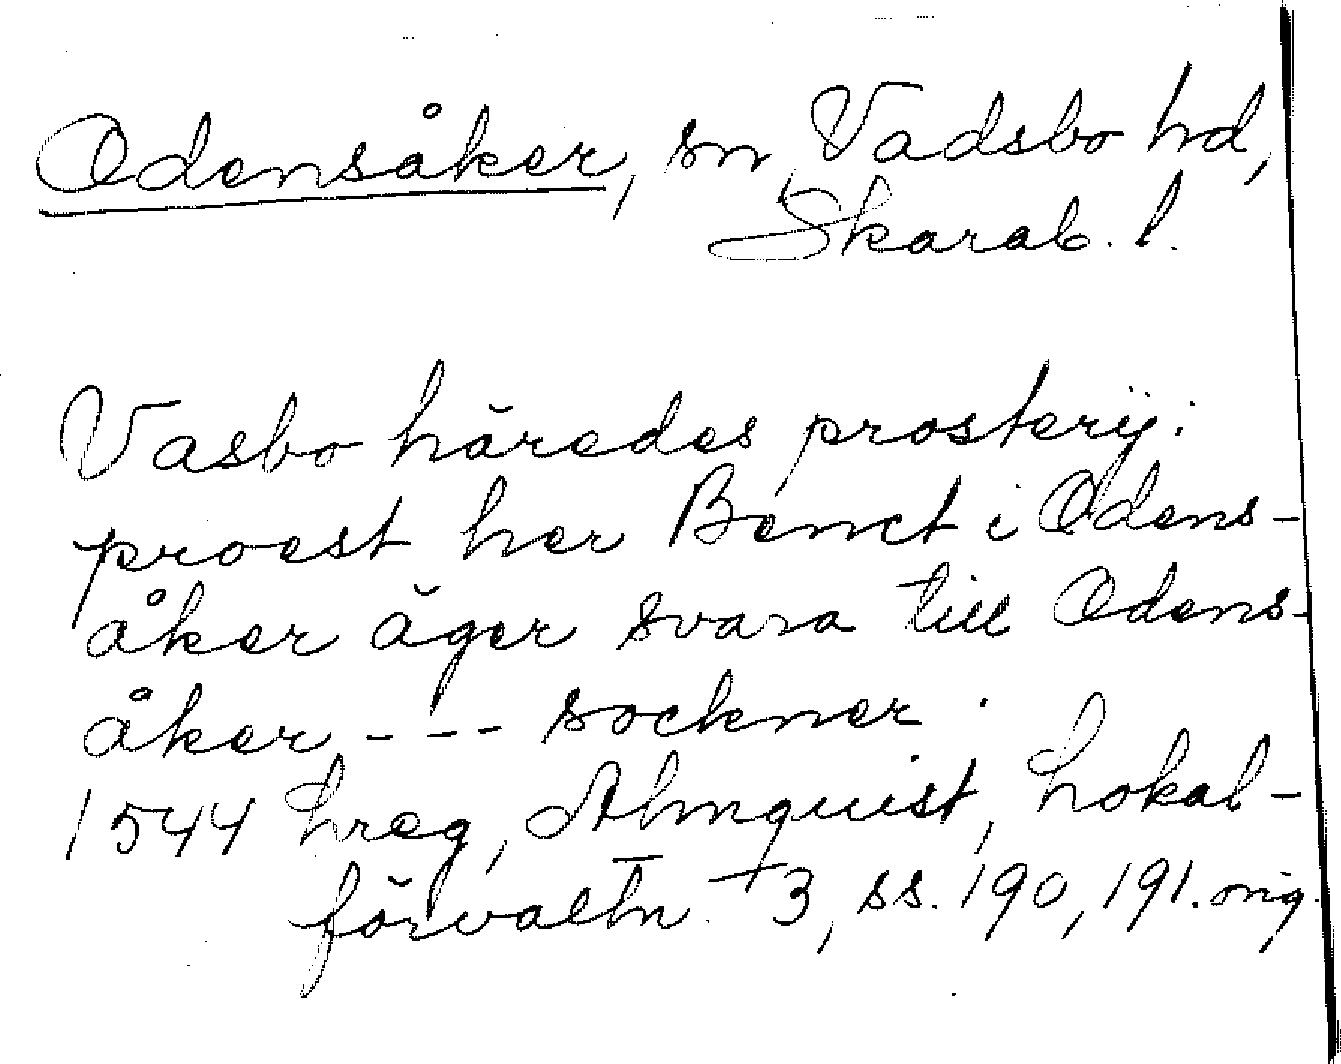 Odensåker, sn, Vadsbo hd,
Skarab. l.
Vasbo häredes prosterij:
proest her Benct i Odens-
åker äger svara till Odens-
åker - - - sockner.
1544 hreg, Almquist, Lokal-
förvaltn. 3, ss. 190, 191. orig.